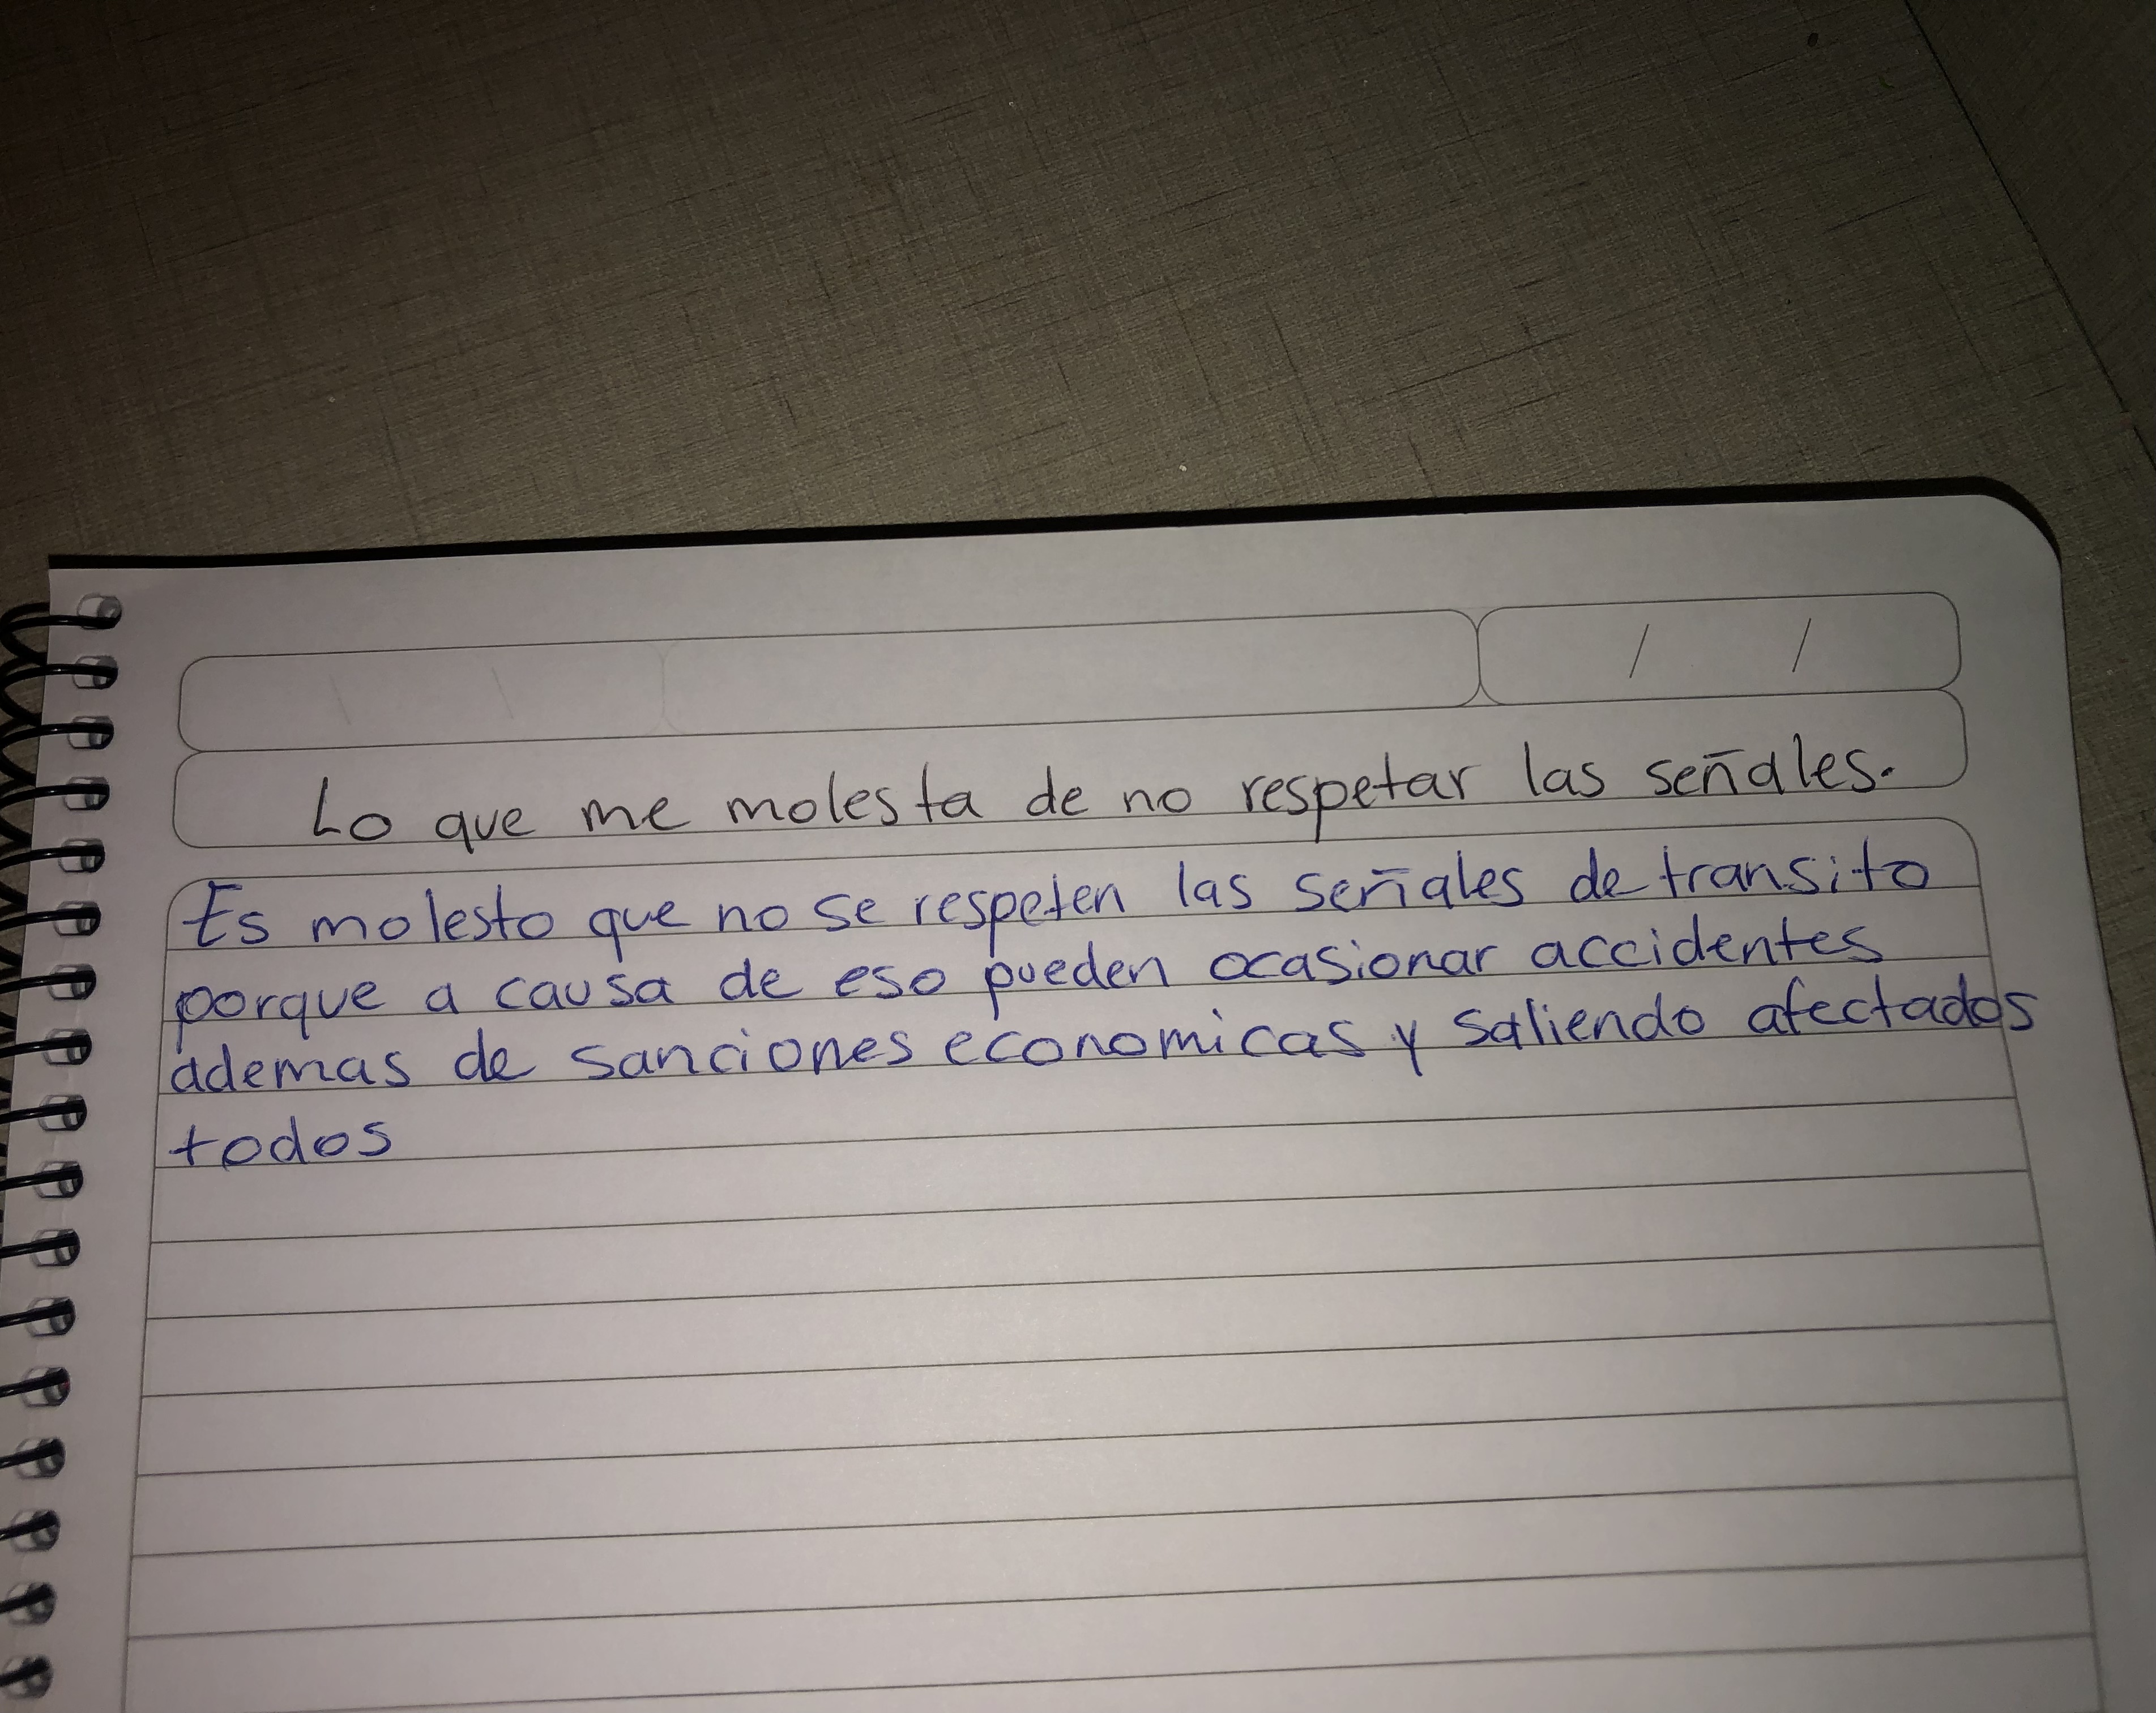 / /
Lo que me molesta de no respetar las señales.
Es molesto que no se respeten las señales de transito
porque a causa de eso pueden ocasionar accidentes
ademas de sanciones economicas y saliendo afectados
todos